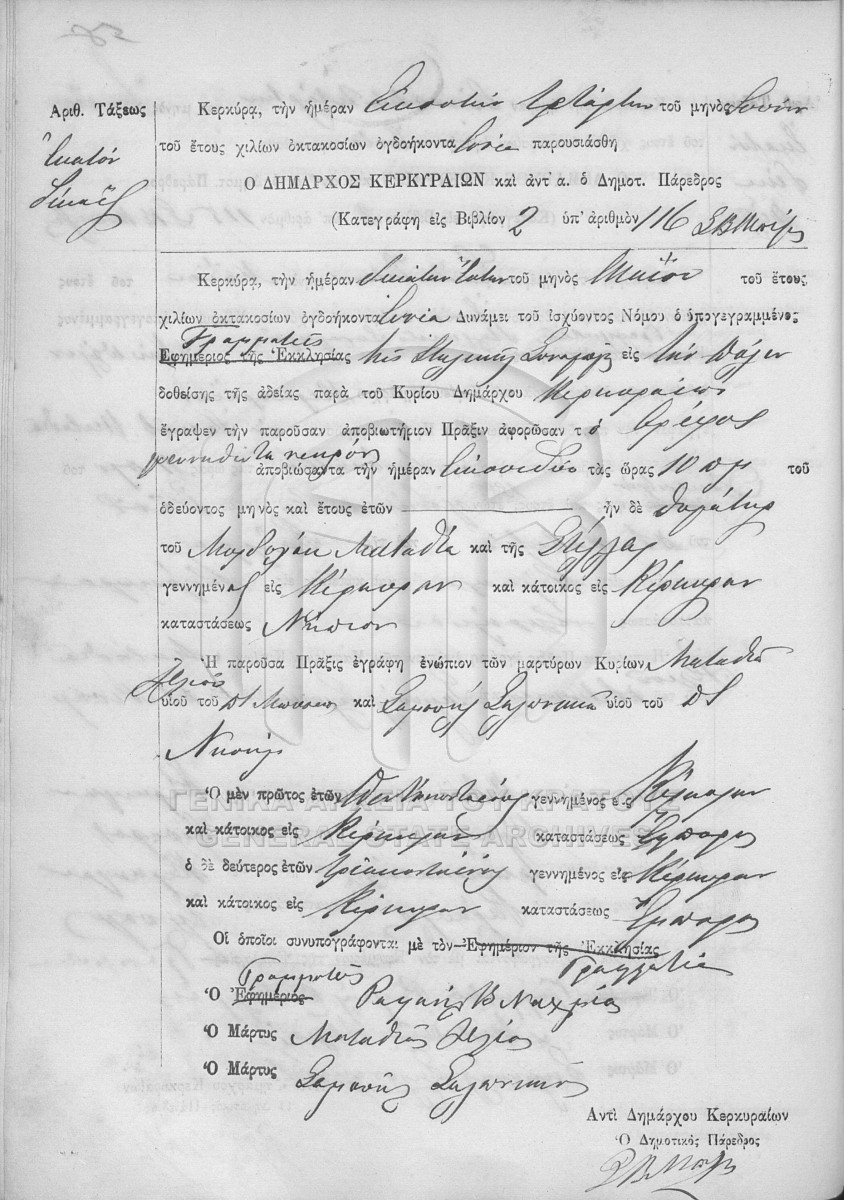 Ἀριθ. Τάξεως
Ἑκατόν
δέκα ἕξ
Κερκύρα, τὴν ἡμέραν Εἰκοστήν τετάρτην τοῦ μηνὸς Ἰουνίου
τοῦ ἔτους χιλίων ὀκτακοσίων ὀγδοήκοντα ἐννέα παρουσιάσθη
Ο ΔΗΜΑΡΧΟΣ ΚΕΡΚΥΡΑΙΩΝ καὶ ἀντ᾽ α. ὁ Δημοτ. Πάρεδρος
(Κατεγράφη εἰς Βιβλίον 2 ὑπ᾽ ἀριθμὸν 116
Κερκύρα, τὴν ἡμέραν τοῦ μηνὸς Μαΐου τοῦ ἔτους
χιλίων ὀκτακοσίων ὀγδοήκοντα ἐννέα Δυνάμει τοῦ ἰσχύοντος Νόμου ὁ ὑπογεγραμμένος
Γραμματεύς
Ἐφημέριος τῆς Ἐκκλησίας τῆς Ἰταλικῆς Συναγωγῆς εἰς τὴν Πόλιν
δοθείσης τῆς ἀδείας παρὰ τοῦ Κυρίου Δημάρχου Κερκυραίων
ἔγραψεν τὴν παροῦσαν ἀποβιωτήριον Πρᾶξιν ἀφορῶσαν τ ὸ βρέφος
γεννηθέντα νεκρόν
ἀποβιώσαντα τὴν ἡμέραν εἰκοσιδύο τὰς ὥρας 10 πμ τοῦ
ὁδεύοντος μηνὸς καὶ ἔτους ἐτῶν — ἦν δὲ θυγάτηρ
τοῦ Μορδοχάη Ματαθία καὶ τῆς Στέλλας
γεννημένος εἰς Κέρκυραν καὶ κάτοικος εἰς Κέρκυραν
καταστάσεως Νήπιον
Ἡ παροῦσα Πρᾶξις ἐγράφη ἐνώπιον τῶν μαρτύρων Κυρίων Ματαθία
υἱοῦ τοῦ καὶ Σαμουὴλ υἱοῦ τοῦ
Ὁ μὲν πρῶτος ἐτῶν γεννημένος εἰς Κέρκυραν
καὶ κάτοικος εἰς Κέρκυραν καταστάσεως Ἔμπορος
ὁ δὲ δεύτερος ἐτῶν τριακονταένος γεννημένος εἰς Κέρκυραν
καὶ κάτοικος εἰς Κέρκυραν καταστάσεως Ἔμπορος
Οἱ ὁποῖοι συνυπογράφονται μὲ τὸν Ἐφημέριον τῆς Ἐκκλησίας
Γραμματέα
Γραμματεύς
Ὁ Ἐφημέριος Ραφαήλ Β Ναχμίας
Ὁ Μάρτυς Ματαθίας
Ὁ Μάρτυς Σαμουήλ
Ἀντὶ Δημάρχου Κερκυραίων
Ὁ Δημοτικὸς Πάρεδρος
ΓΕΝΙΚΑ ΑΡΧΕΙΑ ΤΟΥ ΚΡΑΤΟΥΣ
GENERAL STATE ARCHIVES